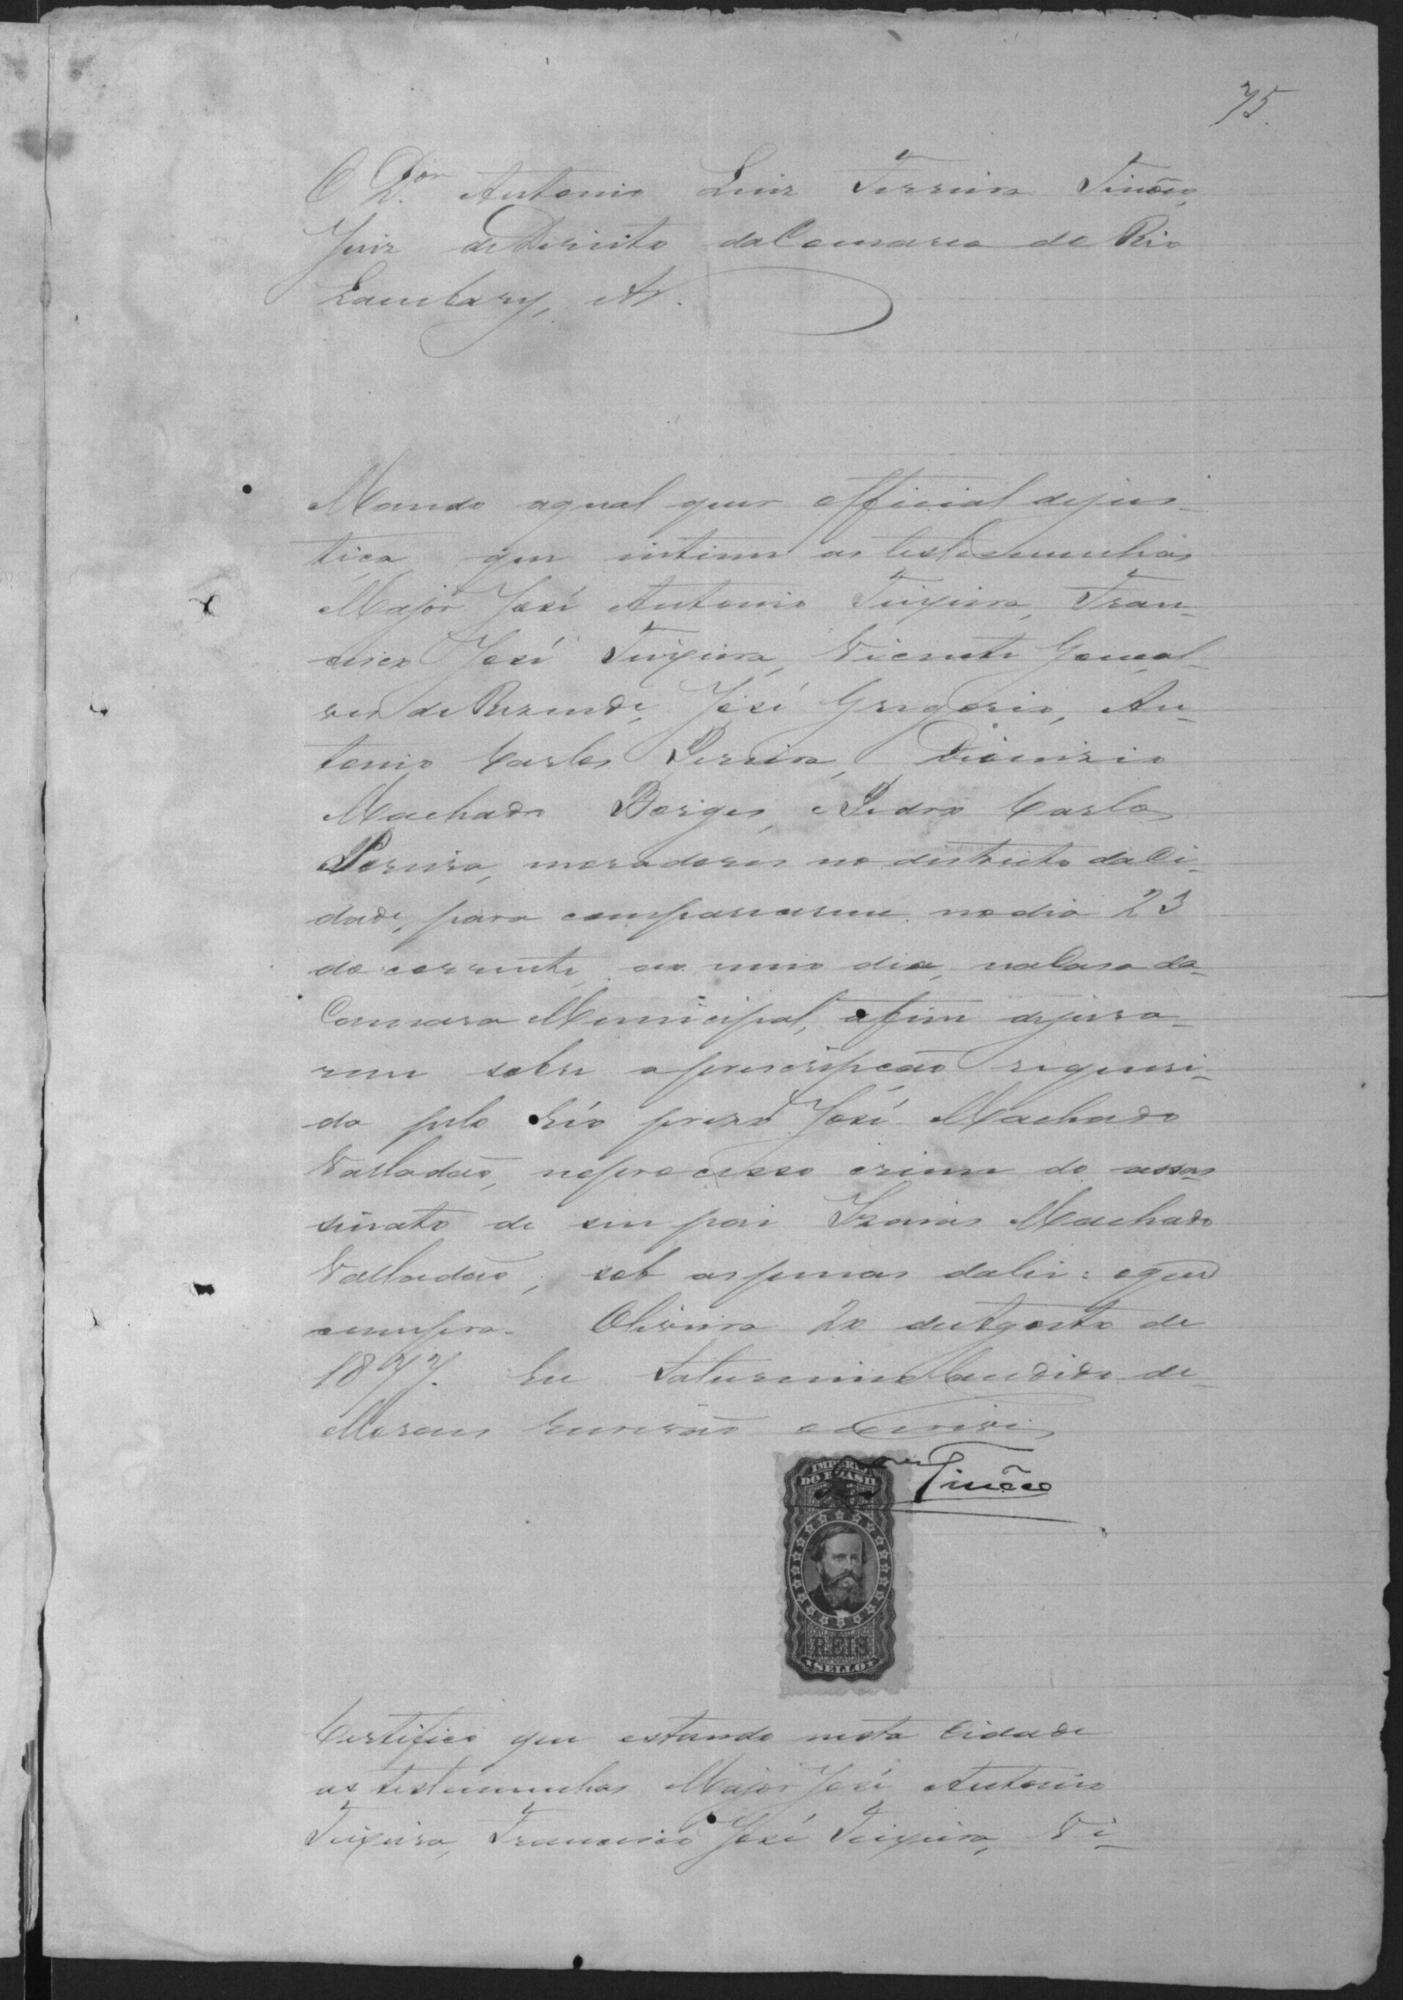 75.
O D.or Antonio Luiz Ferreira Tinôco,
Juiz de Direito da Comarca do Rio
Lambary, &.
Mando aqual quer official dejus-
tiça que intime as testemunhas
Major José Antonio Teixeira, Fran-
cisco José Teixeira, Vicente Gonçal-
ves de Rezende, José Gregorio, An-
tonio Carlos Pereira, Dionizio
Machado Borges, e Pedro Carlos
Pereira, moradores no districto da Ci-
dade, para comparecerem no dia 23
do corrente, ao meio dia, na Casa da
Camara Municipal, afim dejura-
rem sobre a prescripção requeri-
da pelo réo prezo José Machado
Valladão, no processo crime do assas
sinato de seu pai Izaias Machado
Valladão, sob as penas da lei: o que
cumpra. Oliveira 20 de Agosto de
1877. Eu Saturnino Candido de
Moraes Escrivão o escrivi
Tinôco
IMPERIO
DO BRASIL
REIS
SELLO
Certifico que estando nesta Cidade
as testemunhas Major José Antonio
Teixeira, Francisco José Teixeira, Vi-